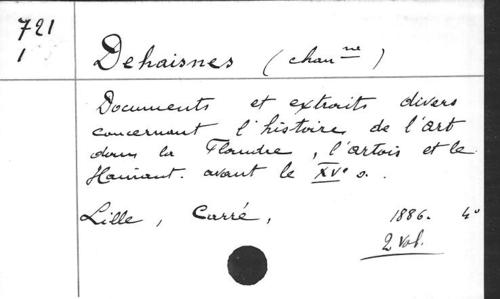 721
1
Dehaisnes (chanⁿᵉ)
Documents et extraits divers
concernant l'histoire de l'art
dans la Flandre, l'artois et le
Hainaut. avant le XVᵉ s.
Lille, Carré, 1886. 4°
2 Vol.